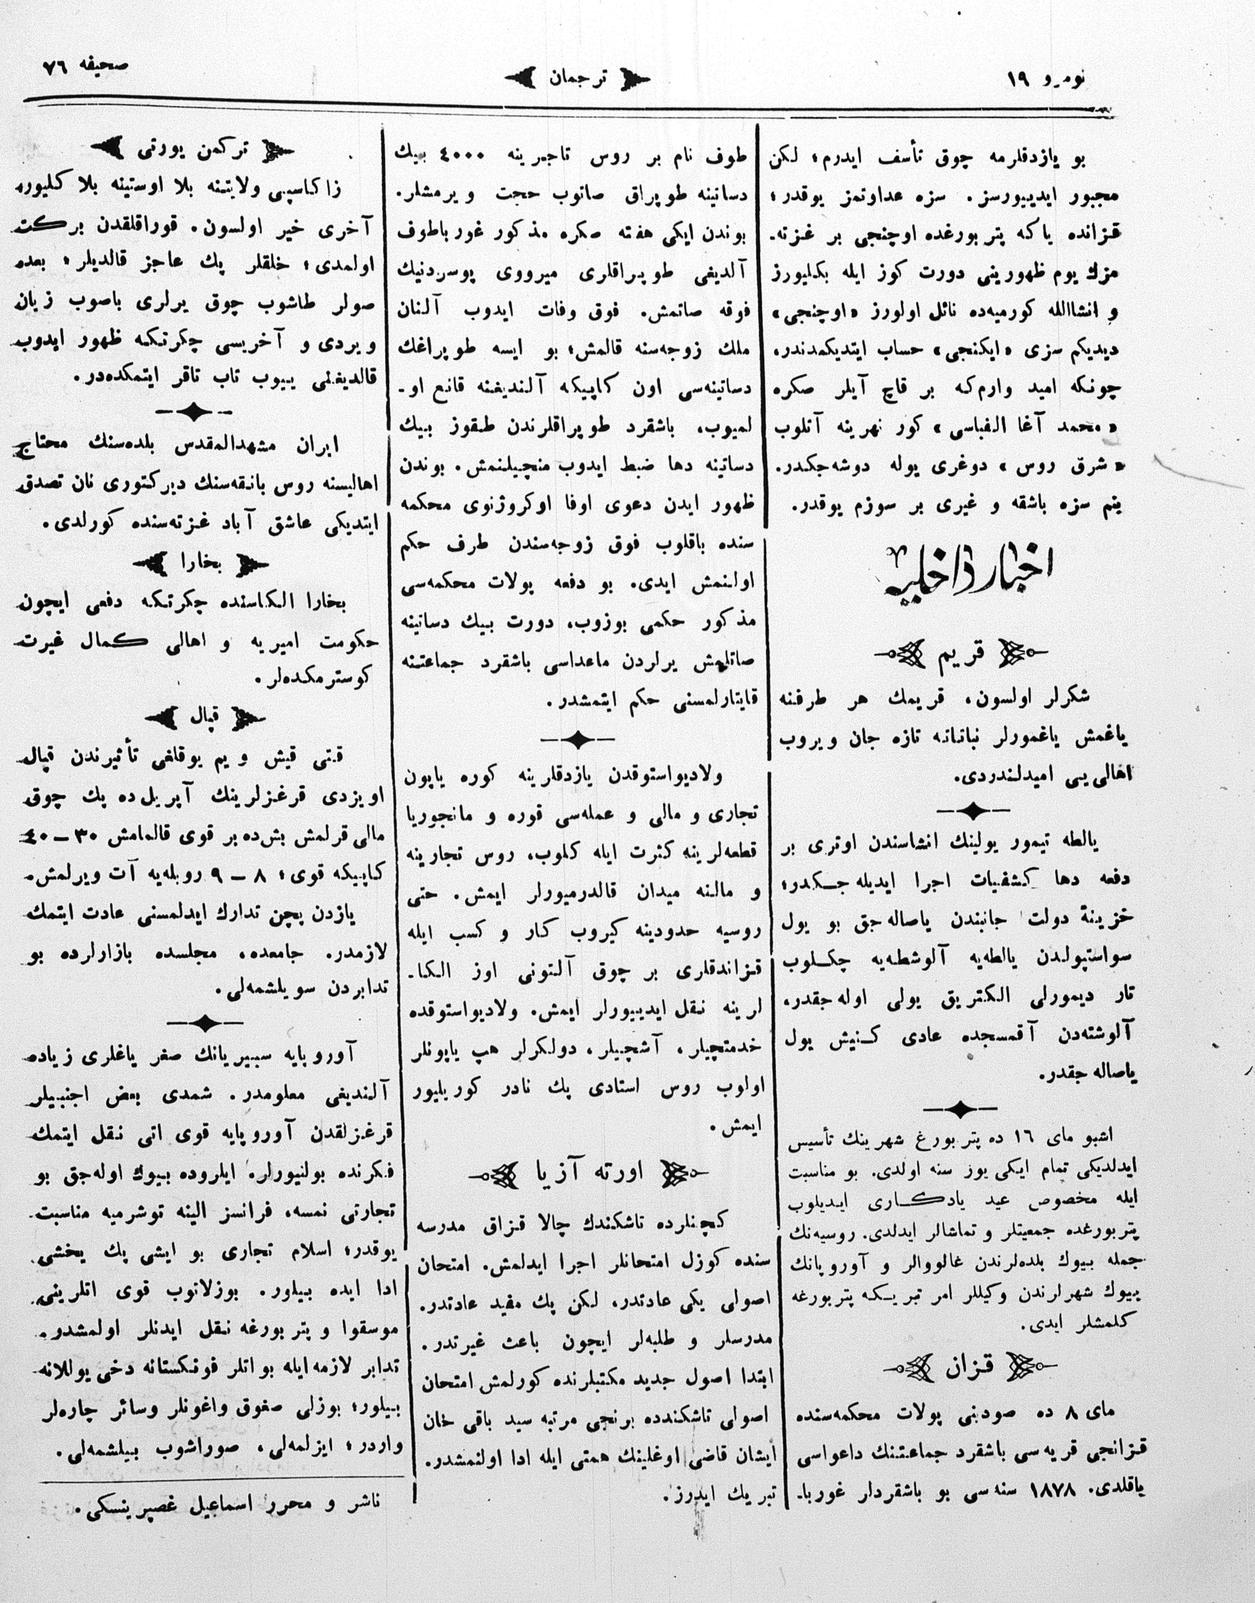 نومرو ١٩
ترجمان
صحيفه ٧٦
بو يازدقلرمه چوق تأسف ايدرم؛ لكن
مجبور ايدييورسز. سزه عداوتمز يوقدر؛
قزانده ياكه پتربورغده اوچنجى بر غزته‌ـ
مزك يوم ظهورينى دورت كوز ايله بكليورز
و انشاالله كورميه‌ده نائل اولورز «اوچنجى»
ديديكم سزى «ايكنجى» حساب ايتديكمدندر،
چونكه اميد وارم‌كه بر قاچ آيلر صكره
«محمد آغا الفباسى» كور نهرينه آتلوب
«شرق روس» دوغرى يوله دوشه‌جكدر.
ينم سزه باشقه و غيرى بر سوزم يوقدر.
اخبار داخليه
قريم
شكرلر اولسون، قريمك هر طرفنه
ياغمش ياغمورلر نباتانه تازه جان ويروب
اهالى‌يى اميدلندردى.
يالطه تيمور يولينك انشاسندن اوترى بر
دفعه دها كشفيات اجرا ايديله‌جكدر؛
خزينهٔ دولت جانبندن ياصاله‌جق بو يول
سواستپولدن يالطه‌يه آلوشطه‌يه چكلوب
تار ديمورلى الكتريق يولى اوله‌جقدر،
آلوشته‌دن آقمسجده عادى كنيش يول
ياصاله‌جقدر.
اشبو ماى ١٦ ده پتربورغ شهرينك تأسيس
ايدلديكى تمام ايكى يوز سنه اولدى. بو مناسبت
ايله مخصوص عيد يادكارى ايديلوب
پتربورغده جمعيتلر و تماشالر ايدلدى. روسيه‌نك
جمله بيوك بلده‌لرندن غالووالر و آوروپانك
بيوك شهرلرندن وكيللر امر تبريكه پتربورغه
كلمشلر ايدى.
قزان
ماى ٨ ده صودبنى پولات محكمه‌سنده
قزانجى قريه‌سى باشقرد جماعتنك داعواسى
ياقلدى. ١٨٧٨ سنه‌سى بو باشقردلر غورباـ
طوف نام بر روس تاجرينه ٤٠٠٠ بيك
دساتينه طوپراق صاتوب حجت ويرمشلر.
بوندن ايكى هفته صكره مذكور غورباطوف
آلديغى طوپراقلرى ميرووى پوسردنيك
فوقه صاتمش. فوق وفات ايدوب آلنان
ملك زوجه‌سنه قالمش؛ بو ايسه طوپراغك
دساتينه‌سى اون كاپيكه آلنديغنه قانع اوـ
لميوب، باشقرد طوپراقلرندن طقوز بيك
دساتينه دها ضبط ايدوب منچيلنمش. بوندن
ظهور ايدن دعوى اوفا اوكروژنوى محكمه
سنده باقلوب فوق زوجه‌سندن طرف حكم
اولنمش ايدى. بو دفعه پولات محكمه‌سى
مذكور حكمى بوزوب، دورت بيك دساتينه
صاتلمش يرلردن ماعداسى باشقرد جماعتنه
قايتارلمسنى حكم ايتمشدر.
ولاديواستوقدن يازدقلرينه كوره ياپون
تجارى و مالى و عمله‌سى قوره و مانجوريا
قطعه‌لرينه كثرت ايله كلوب، روس تجارينه
و مالنه ميدان قالدرميورلر ايمش. حتى
روسيه حدودينه كيروب كار و كسب ايله
قزاندقلرى بر چوق آلتونى اوز الكاـ
لرينه نقل ايدييورلر ايمش. ولاديواستوقده
خدمتچيلر، آشچيلر، دولكرلر هپ ياپونلر
اولوب روس استادى پك نادر كوريليور
ايمش.
اورته آزيا
كچنلرده تاشكندك چالا قزاق مدرسه
سنده كوزل امتحانلر اجرا ايدلمش. امتحان
اصولى يكى عادتدر، لكن پك مفيد عادتدر.
مدرسلر و طلبه‌لر ايچون باعث غيرتدر.
ابتدا اصول جديد مكتبلرنده كورلمش امتحان
اصولى تاشكندده برنجى مرتبه سيد باقى خان
ايشان قاضى اوغلينك همتى ايله ادا اولنمشدر.
تبريك ايدرز.
تركمن يورتى
زاكاسپى ولايتنه بلا اوستينه بلا كليور،
آخرى خير اولسون. قوراقلقدن بركت
اولمدى؛ خلقلر پك عاجز قالديلر؛ بعده
صولر طاشوب چوق يرلرى باصوب زيان
ويردى و آخريسى چكرتكه ظهور ايدوب
قالديغنى ييوب تاب تاقر ايتمكده‌در.
ايران مشهدالمقدس بلده‌سنك محتاج
اهاليسنه روس بانقه‌سنك ديركتورى نان تصدق
ايتديكى عاشق آباد غزته‌سنده كورلدى.
بخارا
بخارا الكاسنده چكرتكه دفعى ايچون
حكومت اميريه و اهالى كمال غيرت
كوسترمكده‌لر.
قپال
قتى قيش و يم يوقلغى تأثيرندن قپال
اويزدى قرغزلرينك آپريل‌ده پك چوق
مالى قرلمش بش‌ده بر قوى قالمامش ٣٠ — ٤٠
كاپيكه قوى؛ ٨ — ٩ روبله‌يه آت ويرلمش.
يازدن پچن تدارك ايدلمسنى عادت ايتمك
لازمدر. جامعده، مجلسده بازارلرده بو
تدابردن سويلشمه‌لى.
آوروپايه سيبريانك صغر ياغلرى زياده
آلنديغى معلومدر. شمدى بعض اجنبيلر
قرغزلقدن آوروپايه قوى اتى نقل ايتمك
فكرنده بولنيورلر. ايلروده بيوك اوله‌جق بو
تجارتى نمسه، فرانسز الينه توشرميه مناسبت
يوقدر؛ اسلام تجارى بو ايشى پك يخشى
ادا ايده بيلور. بوزلانوب قوى اتلرينى
موسقوا و پتربورغه نقل ايدنلر اولمشدر.
تدابر لازمه‌ايله بو اتلر فرنكستانه دخى يوللانه
بيلور؛ بوزلى صغوق واغونلر وسائر چاره‌لر
واردر؛ ايزلمه‌لى، صوراشوب بيلشمه‌لى.
ناشر و محرر اسماعيل غصپرينسكى.